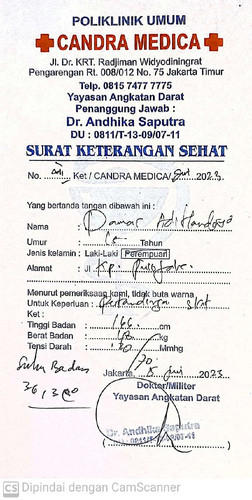 POLIKLINIK UMUM
CANDRA MEDICA
Jl. Dr. KRT. Radjiman Widyodiningrat
Pengarengan Rt. 008/012 No. 75 Jakarta Timur
Telp. 0815 7477 7775
Yayasan Angkatan Darat
Penanggung Jawab :
Dr. Andhika Saputra
DU : 0811/T-13-09/07-11
SURAT KETERANGAN SEHAT
No. Ket / CANDRA MEDICA / Juni 2023
Yang bertanda tangan dibawah ini :
Nama : Damar
Umur : Tahun
Jenis kelamin : Laki-Laki Perempuan
Alamat : Jl Kp.
Menurut pemeriksaan kami, tidak buta warna
Untuk Keperluan : Pertandingan
Ket :
Tinggi Badan : 166 cm
Berat Badan : kg
Tensi Darah : Mmhg
Suhu Badan
Jakarta, Juni 2023
Dokter/Militer
Yayasan Angkatan Darat
Dr. Andhika Saputra
CS Dipindai dengan CamScanner